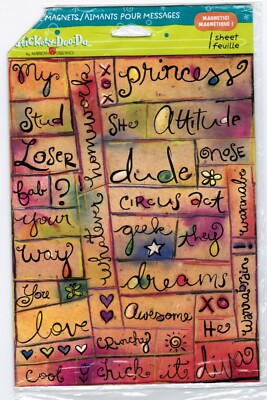 Stickety-Doo-Da
MAGNETS/AIMANTS POUR MESSAGES
MAGNETIC!
MAGNÉTIQUE!
1 sheet
feuille
My
XOXO
princess
Stud
homework
She
Attitude
LOSER
dude
nose
fab
?
whatever
CIRCUS act
wannabe
your
geek
they
!
way
dreams
Wannabgain
You
Awesome
XO
love
He
crunchy
cool
chick
it
diva